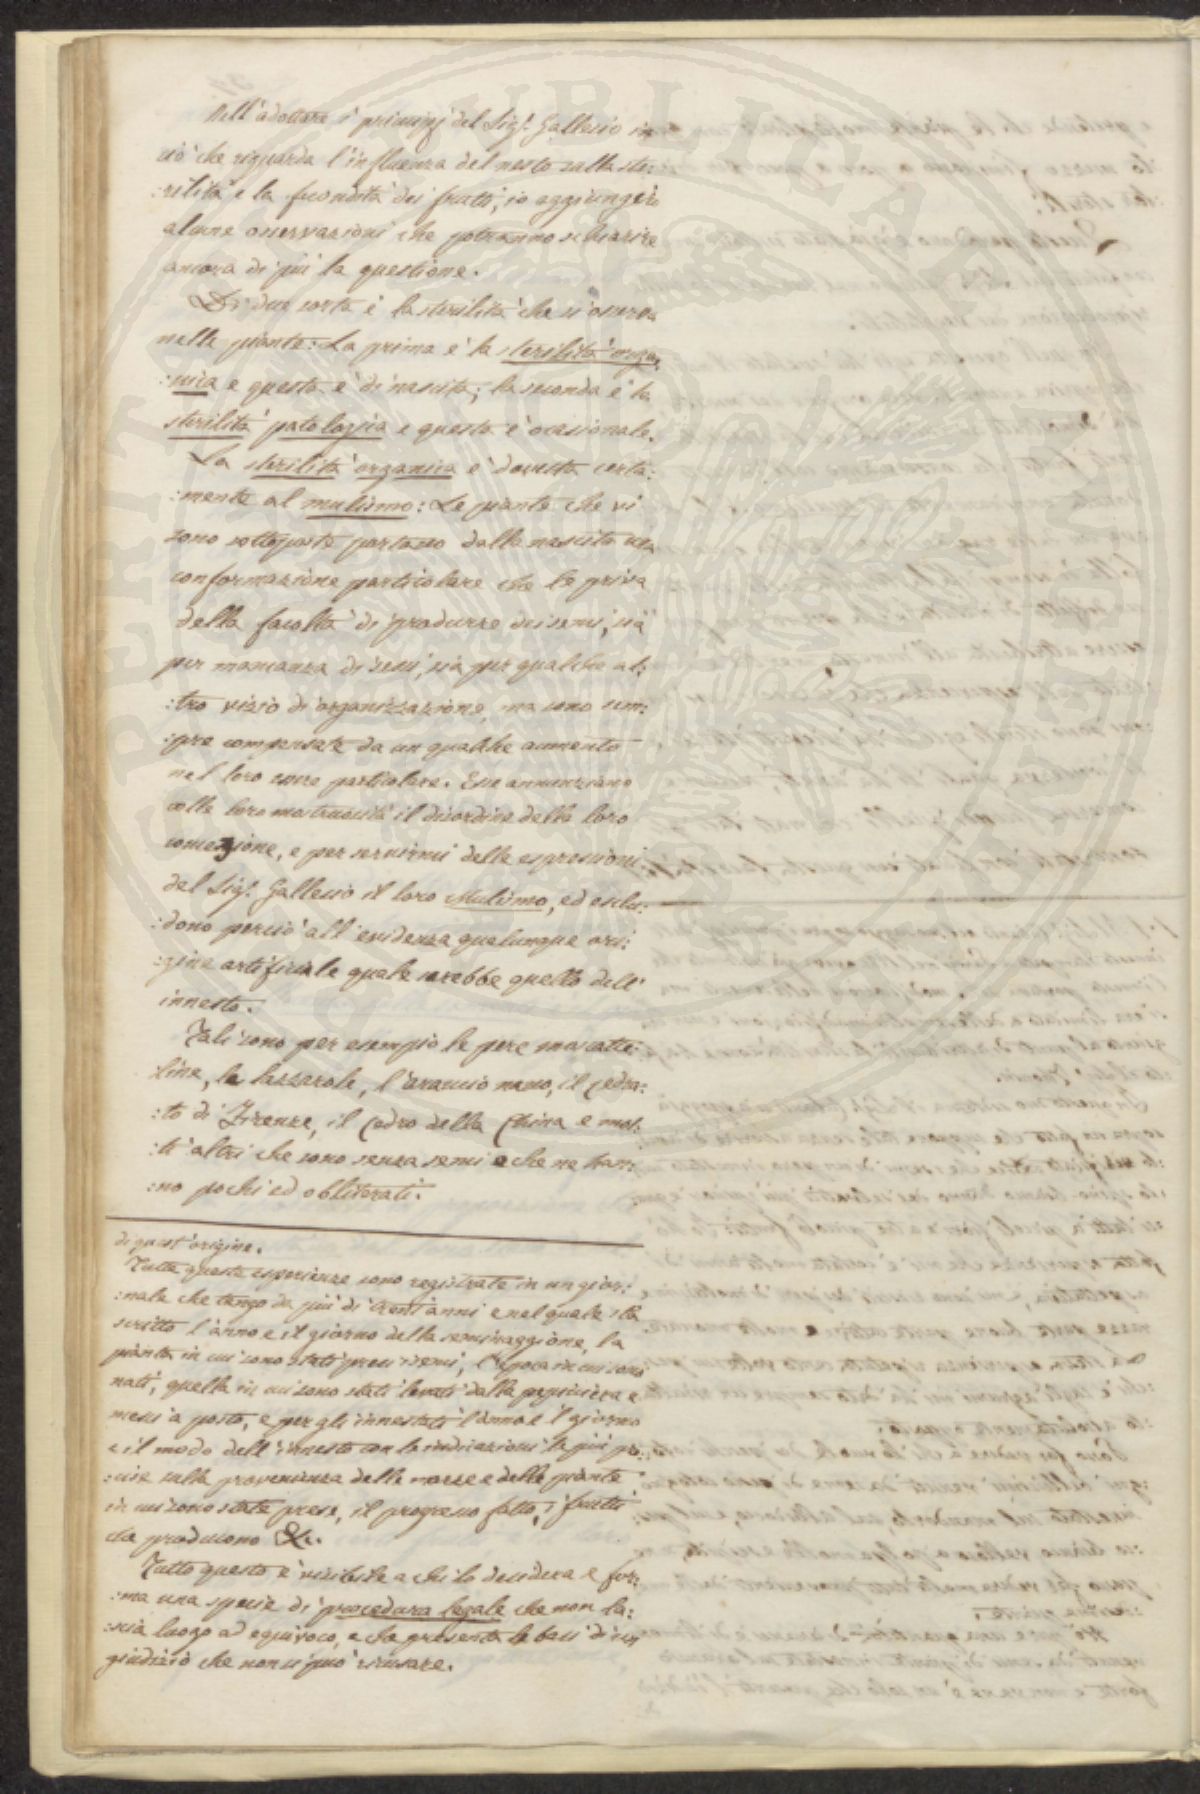 Nell'adottare i principj del Sig.r Gallesio in
ciò che riguarda l'influenza del nesto sulla ste:
:rilità e la fecondità dei frutti, io aggiungerò
alcune osservazioni che potranno schiarire
ancora di più la questione.
Di due sorta è la sterilità che si osserva
nelle piante: La prima è la sterilità orga:
:nica e questa è di nascita; la seconda è la
sterilità patologica e questa è ocasionale.
La sterilità organica è dovuta certa:
:mente al mulismo: Le piante che vi
sono sottoposte portano dalla nascita una
conformazione particolare che le priva
della facoltà di produrre dei semi, sia
per mancanza di sessi, sia per qualche al:
:tro vizio di organizzazione, ma sono sem:
:pre compensate da un qualche aumento
nel loro essere particolare. Esse annunziano
colle loro mostruosità il disordine della loro
concezione, e per servirmi delle espressioni
del Sig.r Gallesio il loro Mulismo, ed esclu:
:dono perciò all'evidenza qualunque ori:
:gine artificiale quale sarebbe quella dell'
innesto.
Tali sono per esempio le pere moscatel:
line, le lazzarole, l'arancio nano, il cedra:
:to di Firenze, il Cedro della China e mol:
:ti altri che sono senza semi o che ne han:
:no pochi ed obliterati.
di quest'origine.
Tutte queste esperienze sono registrate in un gior:
:nale che tengo da più di trent'anni e nel quale stà
scritto l'anno e il giorno della seminaggione, la
pianta in cui sono stati presi i semi, l'epoca in cui sono
nati, quella in cui sono stati levati dalla pepiniera e
messi a posto, e per gli innestati l'anno e il giorno
e il modo dell'innesto con le indicazioni le più pre:
:cise sulla provenienza delle marze e delle piante
in cui sono state prese, il progresso fatto, i frutti
che producono &c.
Tutto questo è visibile a chi lo desidera e for:
:ma una specie di procedura legale che non la:
:scia luogo ad equivoco, e che presenta le basi di un
giudizio che non si può ricusare.